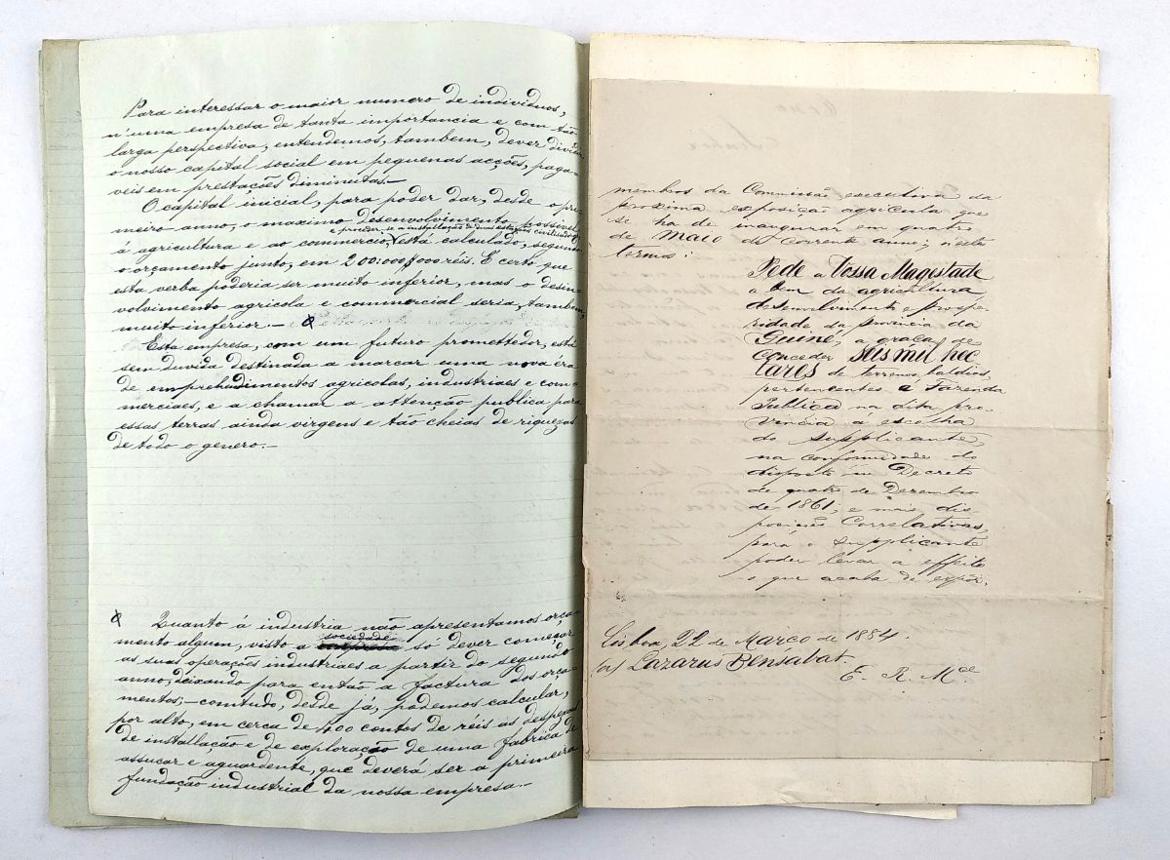 Para interessar o maior numero de individuos,
n'uma empresa de tanta importancia e com tão
larga perspectiva, entendemos, tambem, dever dividir
o nosso capital social em pequenas acções, paga-
veis em prestações diminutas.—
O capital inicial, para poder dar, desde o pri-
meiro anno, o maximo desenvolvimento possivel
e proceder-se a installação de duas estações civilisadoras
á agricultura e ao commercio, está calculado, segundo
o orçamento junto, em 200:000$000 réis. É certo que
esta verba poderia ser muito inferior, mas o desen-
volvimento agricola e commercial seria, tambem,
muito inferior.—
Esta empresa, com um futuro promettedor, está
sem duvida destinada a marcar uma nova éra
de emprehendimentos agricolas, industriaes e com-
merciaes, e a chamar a attenção publica para
essas terras ainda virgens e tão cheias de riquezas
de todo o genero.—
Quanto á industria não apresentamos orça-
mento algum, visto a sociedade só dever começar
as suas operações industriaes a partir do segundo
anno, deixando para então a factura dos orça-
mentos,—comtudo, desde já, podemos calcular,
por alto, em cerca de 400 contos de réis as despezas
de installação e de exploração de uma fabrica de
assucar e aguardente, que deverá ser a primeira
fundação industrial da nossa empresa.—
membros da Commissão executiva da
proxima exposição agricula que
se ha de inaugurar em quatro
de Maio do Corrente anno; n'estes
termos:
Pede a Vossa Magestade
a bem da agricultura
desenvolvimento e prospe-
ridade da provincia da
Guiné, a graça de
Conceder seis mil hec
tares de terrenos baldios,
pertencentes á Fazenda
Publica na dita pro-
vincia a escolha
do supplicante,
na conformidade do
disposto no Decreto
de quatro de Dezembro
de 1861, e mais dis
posições Correlativas,
para o supplicante
poder levar a effeito
o que acaba de expôr.
Lisboa, 22 de Março de 1884.
(a) Lazarus Bensabat.
E. R. M.ce